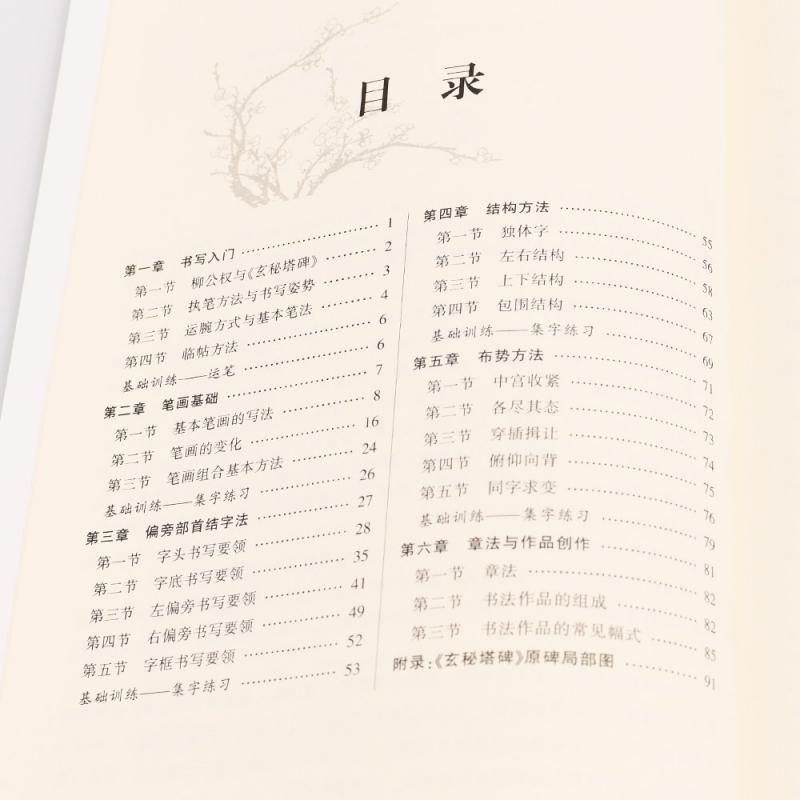 目 录
第一章 书写入门 1
第一节 柳公权与《玄秘塔碑》 2
第二节 执笔方法与书写姿势 3
第三节 运腕方式与基本笔法 4
第四节 临帖方法 6
基础训练——运笔 6
第二章 笔画基础 7
第一节 基本笔画的写法 8
第二节 笔画的变化 16
第三节 笔画组合基本方法 24
基础训练——集字练习 26
第三章 偏旁部首结字法 27
第一节 字头书写要领 28
第二节 字底书写要领 35
第三节 左偏旁书写要领 41
第四节 右偏旁书写要领 49
第五节 字框书写要领 52
基础训练——集字练习 53
第四章 结构方法 55
第一节 独体字 56
第二节 左右结构 58
第三节 上下结构 63
第四节 包围结构 67
基础训练——集字练习 69
第五章 布势方法 71
第一节 中宫收紧 72
第二节 各尽其态 73
第三节 穿插揖让 74
第四节 俯仰向背 75
第五节 同字求变 76
基础训练——集字练习 79
第六章 章法与作品创作 81
第一节 章法 82
第二节 书法作品的组成 82
第三节 书法作品的常见幅式 85
附录:《玄秘塔碑》原碑局部图 91